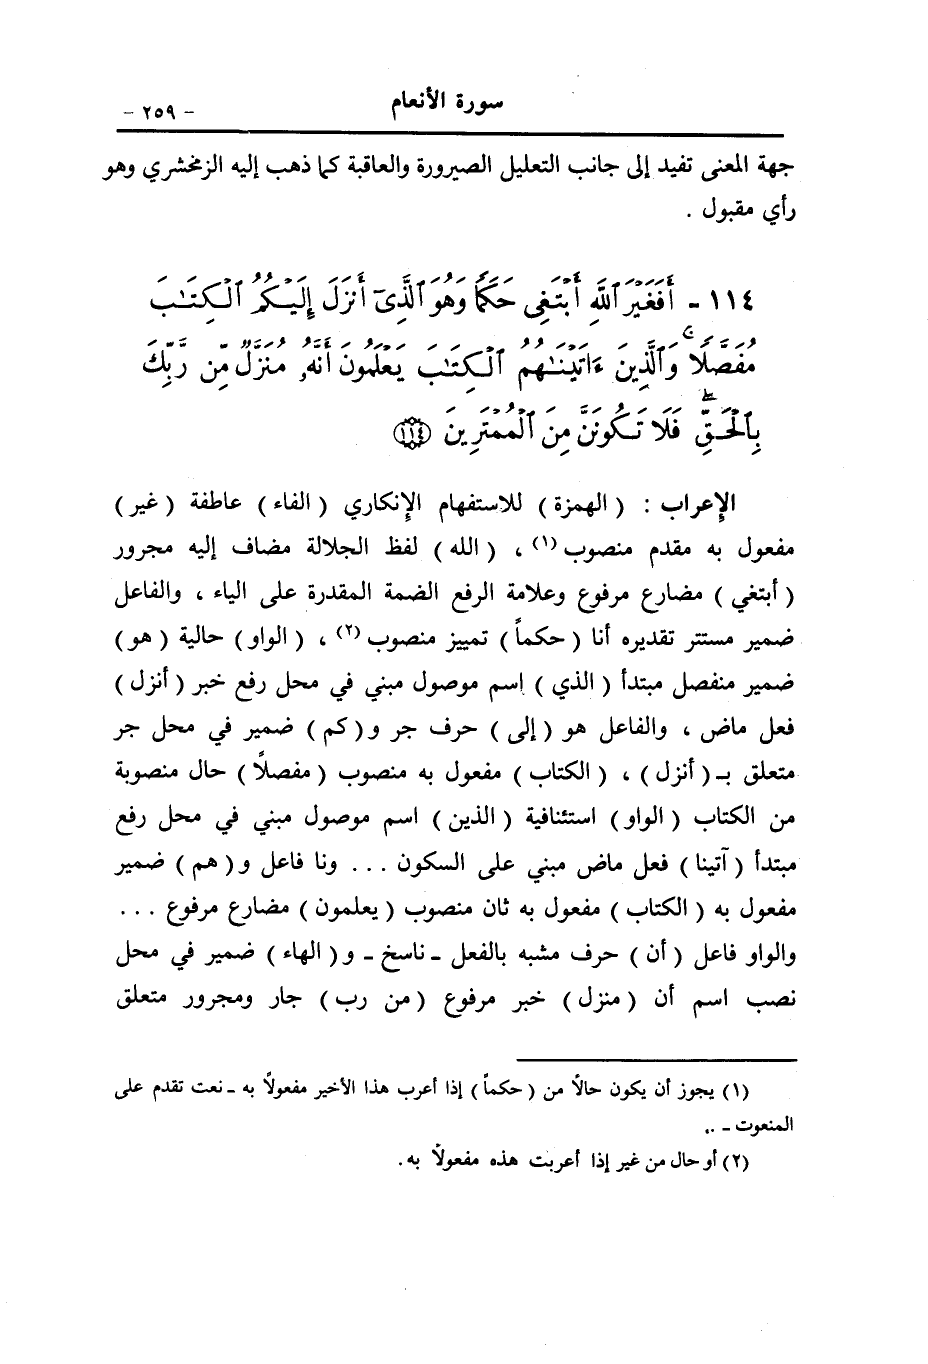 سورة الأنعام
- ٢٥٩ -
جهة المعنى تفيد إلى جانب التعليل الصيرورة والعاقبة كما ذهب إليه الزمخشري وهو
رأي مقبول .
١١٤ - أَفَغَيْرَ ٱللَّهِ أَبْتَغِى حَكَمًا وَهُوَ ٱلَّذِىٓ أَنزَلَ إِلَيْكُمُ ٱلْكِتَـٰبَ
مُفَصَّلًا ۚ وَٱلَّذِينَ ءَاتَيْنَـٰهُمُ ٱلْكِتَـٰبَ يَعْلَمُونَ أَنَّهُۥ مُنَزَّلٌ مِّن رَّبِّكَ
بِٱلْحَقِّ ۖ فَلَا تَكُونَنَّ مِنَ ٱلْمُمْتَرِينَ ﴿١١٤﴾
الإعراب : ( الهمزة ) للاستفهام الإنكاري ( الفاء ) عاطفة ( غير )
مفعول به مقدم منصوب (١) ، ( الله ) لفظ الجلالة مضاف إليه مجرور
( أبتغي ) مضارع مرفوع وعلامة الرفع الضمة المقدرة على الياء ، والفاعل
ضمير مستتر تقديره أنا ( حكماً ) تمييز منصوب (٢) ، ( الواو ) حالية ( هو )
ضمير منفصل مبتدأ ( الذي ) اسم موصول مبني في محل رفع خبر ( أنزل )
فعل ماض ، والفاعل هو ( إلى ) حرف جر و( كم ) ضمير في محل جر
متعلق بـ( أنزل ) ، ( الكتاب ) مفعول به منصوب ( مفصلًا ) حال منصوبة
من الكتاب ( الواو ) استئنافية ( الذين ) اسم موصول مبني في محل رفع
مبتدأ ( آتينا ) فعل ماض مبني على السكون ... ونا فاعل و( هم ) ضمير
مفعول به ( الكتاب ) مفعول به ثان منصوب ( يعلمون ) مضارع مرفوع ...
والواو فاعل ( أن ) حرف مشبه بالفعل - ناسخ - و( الهاء ) ضمير في محل
نصب اسم أن ( منزل ) خبر مرفوع ( من رب ) جار ومجرور متعلق
(١) يجوز أن يكون حالًا من ( حكماً ) إذا أعرب هذا الأخير مفعولاً به - نعت تقدم على
المنعوت - ..
(٢) أو حال من غير إذا أعربت هذه مفعولاً به .